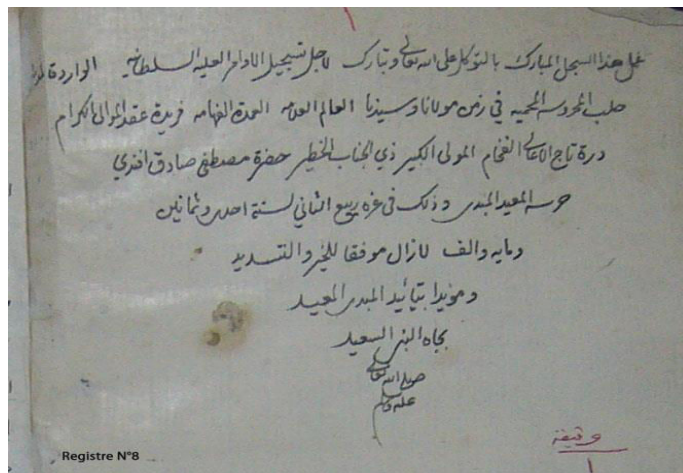 عمل هذا السجل المبارك بالتوكل على الله تعالى وتبارك لاجل تسجيل الاوامر العليه السلطانيه الواردة
حلب المحروسه المحميه في زمن مولانا وسيدنا العالم العلامه العمدة الفهامه فريدة عقد الموالي الكرام
درة تاج الاعالي الفخام المولى الكبير ذي الجناب الخطير حضرة مصطفى صادق افندي
حرسه المعيد المبدي وذلك في غره ربيع الثاني لسنة احدى وثمانين
ومايه والف لازال موفقا للخير والتسديد
ومؤيدا بتائيد المبدي المعيد
بجاه النبي السعيد
صلى الله تعالى
عليه وسلم
وثيقة
١
Registre N°8